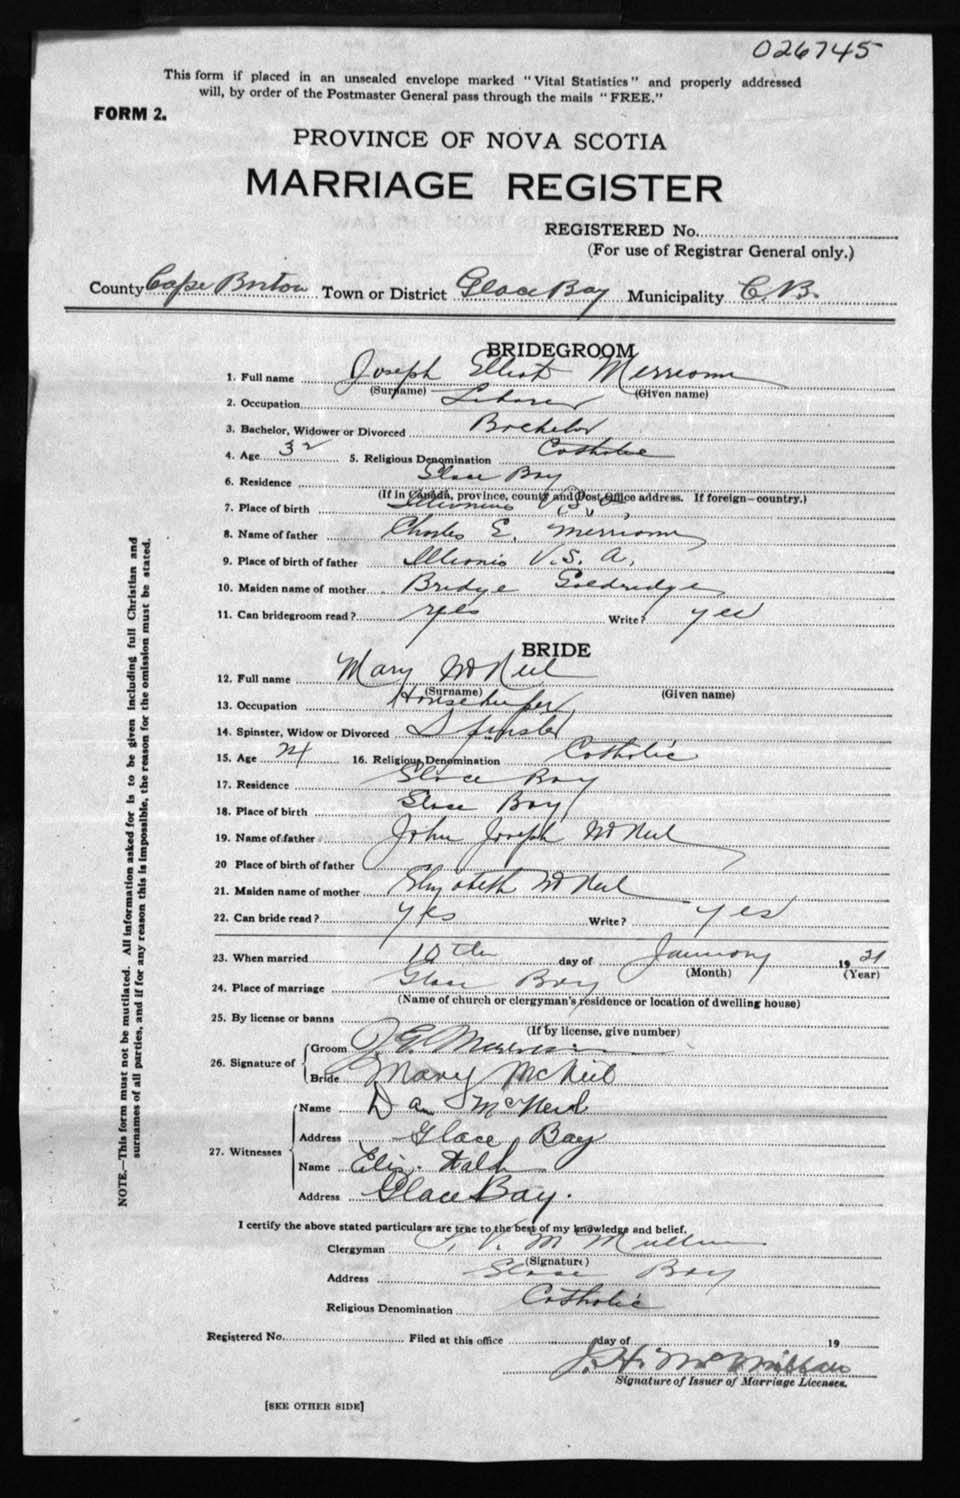 026745
This form if placed in an unsealed envelope marked "Vital Statistics" and properly addressed
will, by order of the Postmaster General pass through the mails "FREE."
FORM 2.
PROVINCE OF NOVA SCOTIA
MARRIAGE REGISTER
REGISTERED No.
(For use of Registrar General only.)
County Cape Breton Town or District Glace Bay Municipality C.B.
BRIDEGROOM
1. Full name Joseph Elliot Merriam
(Surname) (Given name)
2. Occupation Laborer
3. Bachelor, Widower or Divorced Bachelor
4. Age 32 5. Religious Denomination Catholic
6. Residence Glace Bay
(If in Canada, province, county and Post Office address. If foreign—country.)
7. Place of birth U.S.
8. Name of father Charles E. Merriam
9. Place of birth of father Illionis U.S.A.
10. Maiden name of mother Bridge
11. Can bridegroom read? yes Write? yes
BRIDE
12. Full name Mary McNeil
(Surname) (Given name)
13. Occupation Housekeeper
14. Spinster, Widow or Divorced Spinster
15. Age 24 16. Religious Denomination Catholic
17. Residence Glace Bay
18. Place of birth Glace Bay
19. Name of father John Joseph McNeil
20 Place of birth of father
21. Maiden name of mother Elizabeth McNeil
22. Can bride read? yes Write? yes
23. When married day of January 1921
(Month) (Year)
24. Place of marriage Glace Bay
(Name of church or clergyman's residence or location of dwelling house)
25. By license or banns
(If by license, give number)
26. Signature of Groom J. E. Merriam
Bride Mary McNeil
27. Witnesses Name Dan McNeil
Address Glace Bay
Name Eliz. Walsh
Address Glace Bay.
I certify the above stated particulars are true to the best of my knowledge and belief.
Clergyman
(Signature)
Address Glace Bay
Religious Denomination Catholic
Registered No. Filed at this office day of 19
J. H. McMillan
Signature of Issuer of Marriage Licenses.
[SEE OTHER SIDE]
NOTE.—This form must not be mutilated. All information asked for is to be given including full Christian and
surnames of all parties, and if for any reason this is impossible, the reason for the omission must be stated.